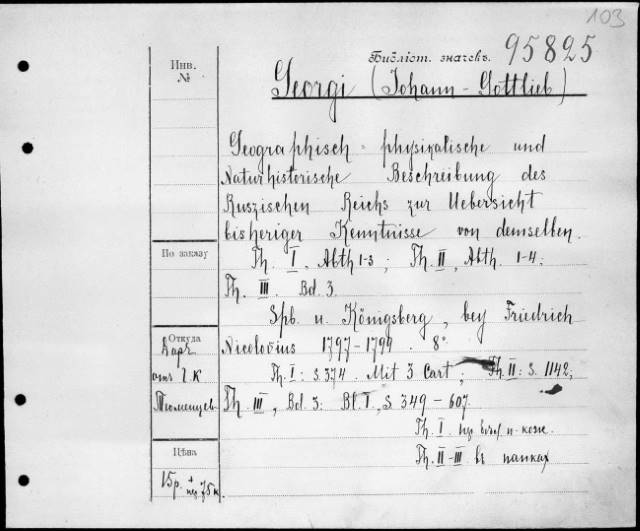 103
Библіот. значекъ. 95825
Инв. №
Georgi (Johann-Gottlieb)
Geographisch-physikalische und
Naturhistorische Beschreibung des
Ruszischen Reichs zur Uebersicht
bisheriger Kenntnisse von demselben.
По заказу
Th. I, Abth 1-3; Th. II, Abth. 1-4;
Th. III. Bd. 3.
Spb. u. Königsberg, bey Friedrich
Откуда
Nicolovius 1797-1799. 8°
Th. I: S. 374. Mit 3 Cart; Th. II: S. 1142;
отъ Г. К
Тюменцев
Th. III, Bd. 3: Bl. I, S. 349-607
Th. I. и. кож.
Th. II-III въ папках
Цѣна
15р. + 75к.